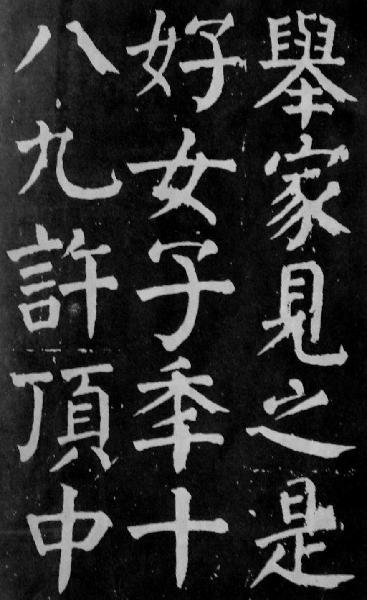 舉家見之是
好女子年十
八九許頂中